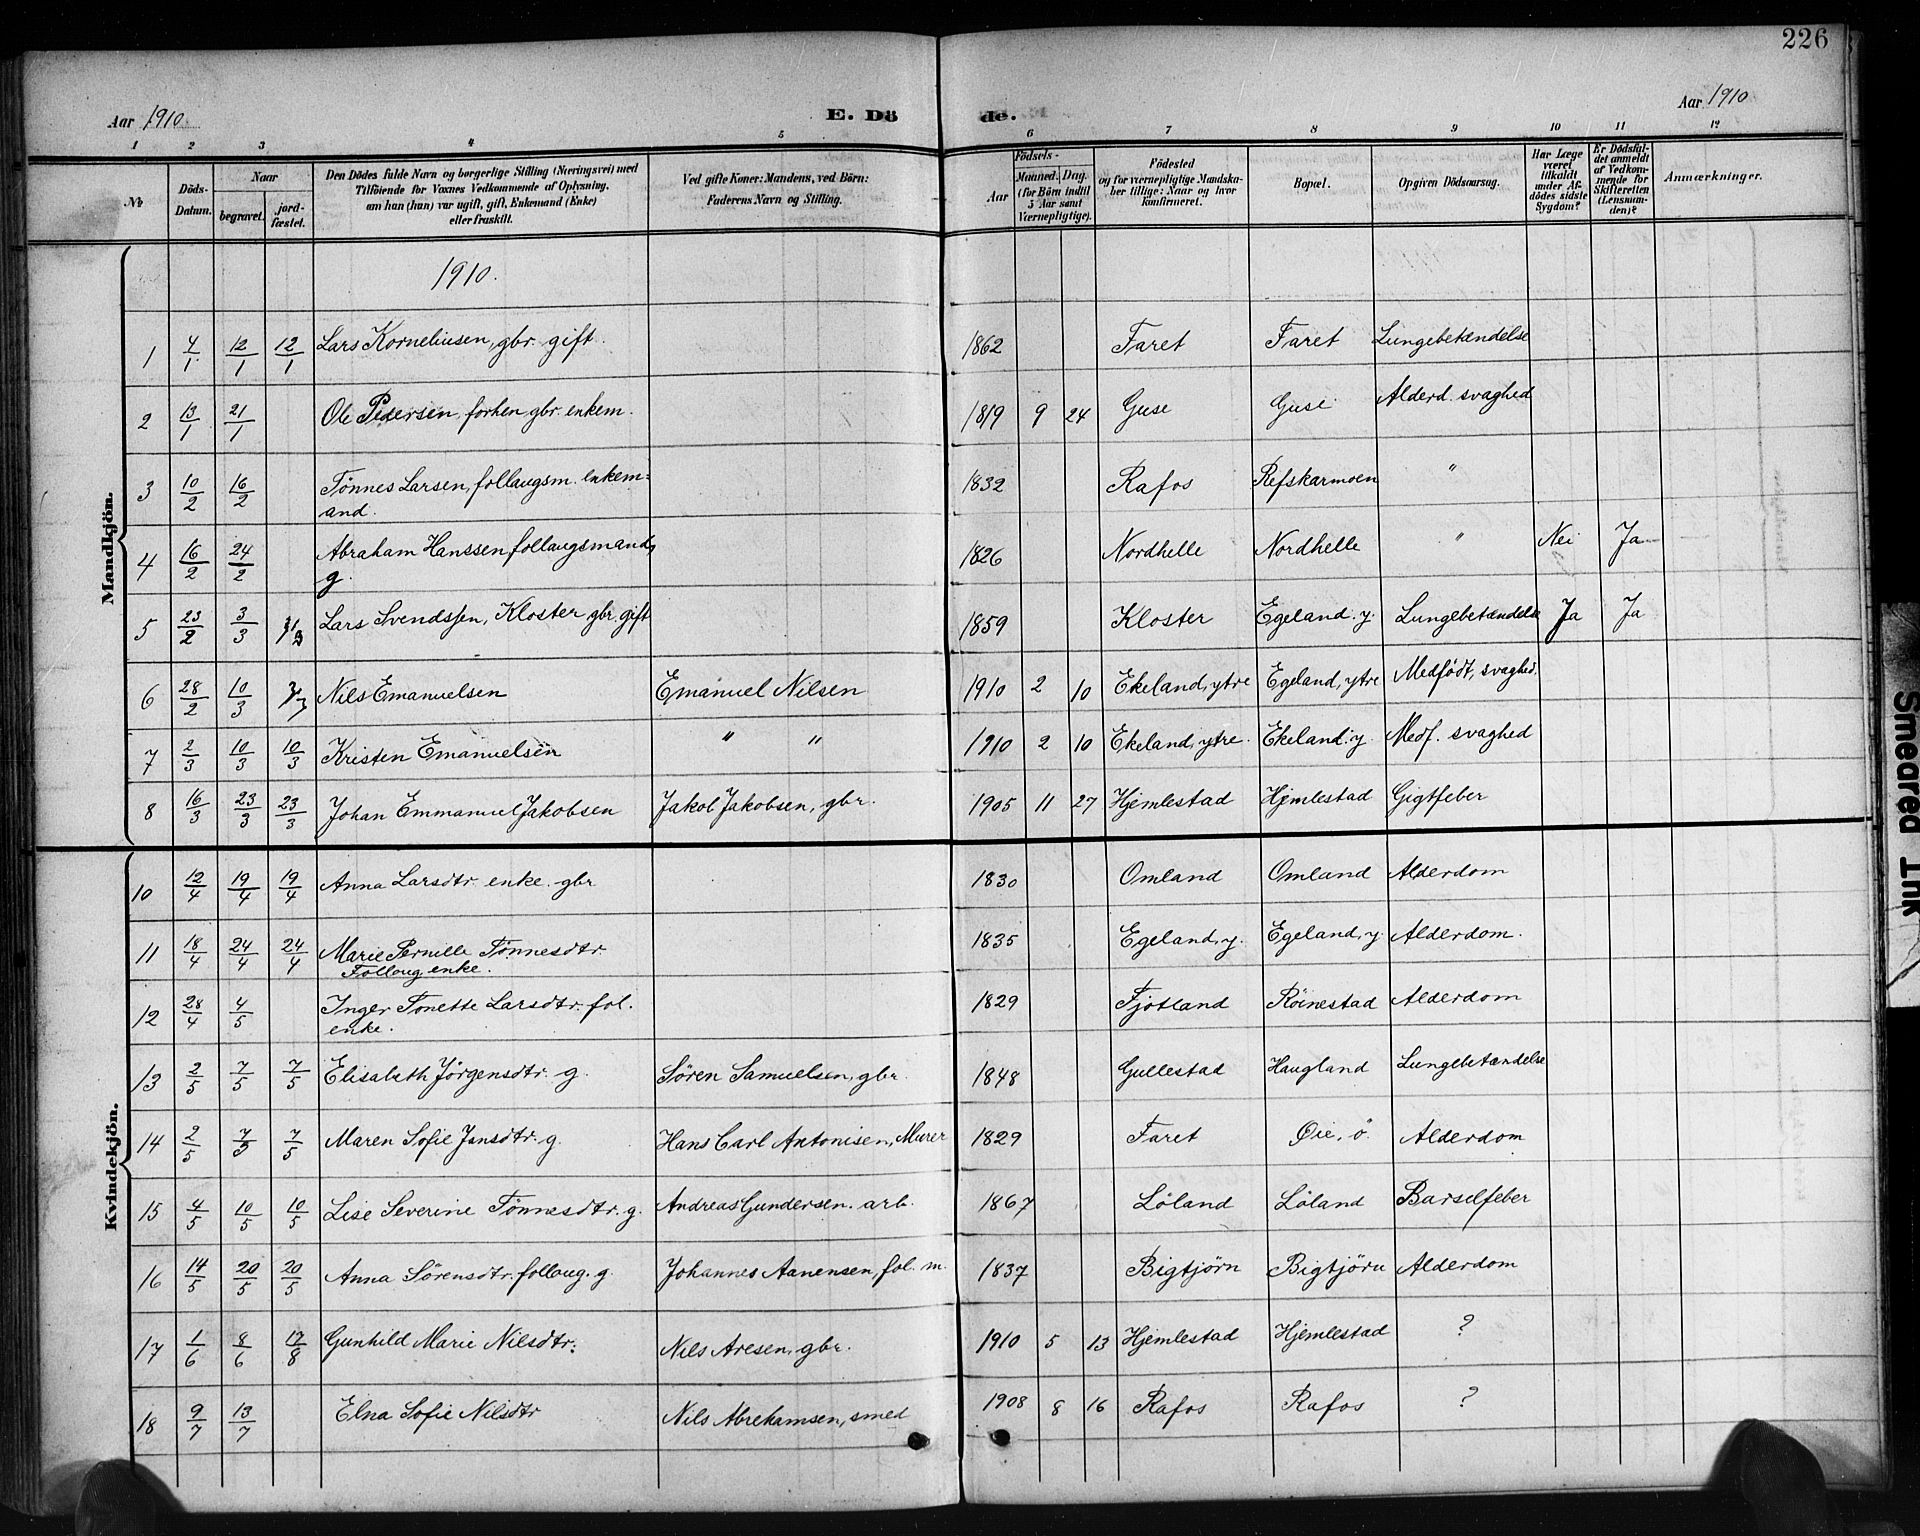 226
Aar 1910
E. Dö
de.
Aar 1910
1 2 3 4 5 6 7 8 9 10 11 12
№
Döds-
Datum.
Naar
begravet.
jord-
fæstet.
Den Dödes fulde Navn og borgerlige Stilling (Næringsvei) med
Tilföiende for Voxnes Vedkommende af Oplysning,
om han (hun) var ugift, gift, Enkemand (Enke)
eller fraskilt.
Ved gifte Koner: Mandens, ved Börn:
Faderens Navn og Stilling.
Födsels-
Aar
Maaned.
Dag.
(for Börn indtil
5 Aar samt
Værnepligtige).
Födested
og for værnepligtige Mandska-
ber tillige: Naar og hvor
konfirmeret.
Bopæl.
Opgiven Dödsaarsag.
Har Læge
været
tilkaldt
under Af-
dödes sidste
Sygdom?
Er Dödsfal-
det anmeldt
af Vedkom-
mende for
Skifteretten
(Lensman-
den)?
Anmærkninger.
Mandkjön.
1910.
1 4/1 12/1 12/1 Lars Korneliusen, gbr. gift. 1862 Faret Faret Lungebetændelse
2 13/1 21/1 Ole Pedersen, forhen gbr. enkem. 1819 9 24 Guse Guse Alderd. svaghed
3 10/2 16/2 Tönnes Larsen, follaugsm. enkem= 1832 Rafos Refskarmoen "
and.
4 16/2 24/2 Abraham Hanssen follaugsmand, 1826 Nordhelle Nordhelle " Nei Ja
g.
5 23/2 3/3 Lars Svendssen, Kloster gbr. gift 1859 Kloster Egeland. y. Lungebetændelse Ja Ja
6 28/2 10/3 Nils Emanuelsen Emanuel Nilsen 1910 2 10 Ekeland, ytre Egeland, ytre Medfödt, svaghed.
7 2/3 10/3 10/3 Kristen Emanuelsen " " 1910 2 10 Ekeland, ytre. Ekeland. y. Medf. svaghed
8 16/3 23/3 23/3 Johan Emmanuel Jakobsen Jakob Jakobsen, gbr. 1905 11 27 Hjemlestad Hjemlestad Gigtfeber
Kvindekjön.
10 12/4 19/4 19/4 Anna Larsdtr. enke. gbr 1830 Omland Omland Alderdom
11 18/4 24/4 24/4 Marie Pernille Tönnesdtr. 1835 Egeland, y. Egeland, y. Alderdom.
Follaug enke.
12 28/4 4/5 Inger Tonette Larsdtr. fol. 1829 Fjotland Röinestad Alderdom
enke.
13 2/5 7/5 7/5 Elisabeth Jörgensdtr. g. Sören Samuelsen, gbr. 1848 Gullestad Haugland Lungebetændelse
14 2/5 7/5 7/5 Maren Sofie Jansdtr. g. Hans Carl Antonisen, Murer 1829 Faret Øie, ö. Alderdom
15 4/5 10/5 10/5 Lise Severine Tönnesdtr. g. Andreas Gundersen. arb. 1867 Löland Löland Barselfeber
16 14/5 20/5 20/5 Anna Sörensdtr. follaug. g. Johannes Aanensen, fol. m. 1837 Bigtjörn Bigtjörn Alderdom
17 1/6 8/6 12/8 Gunhild Marie Nilsdtr. Nils Aresen, gbr. 1910 5 13 Hjemlestad Hjemlestad ?
18 9/7 13/7 Elna Sofie Nilsdtr Nils Abrehamsen, smed 1908 8 16 Rafos Rafos ?
Smeared Ink